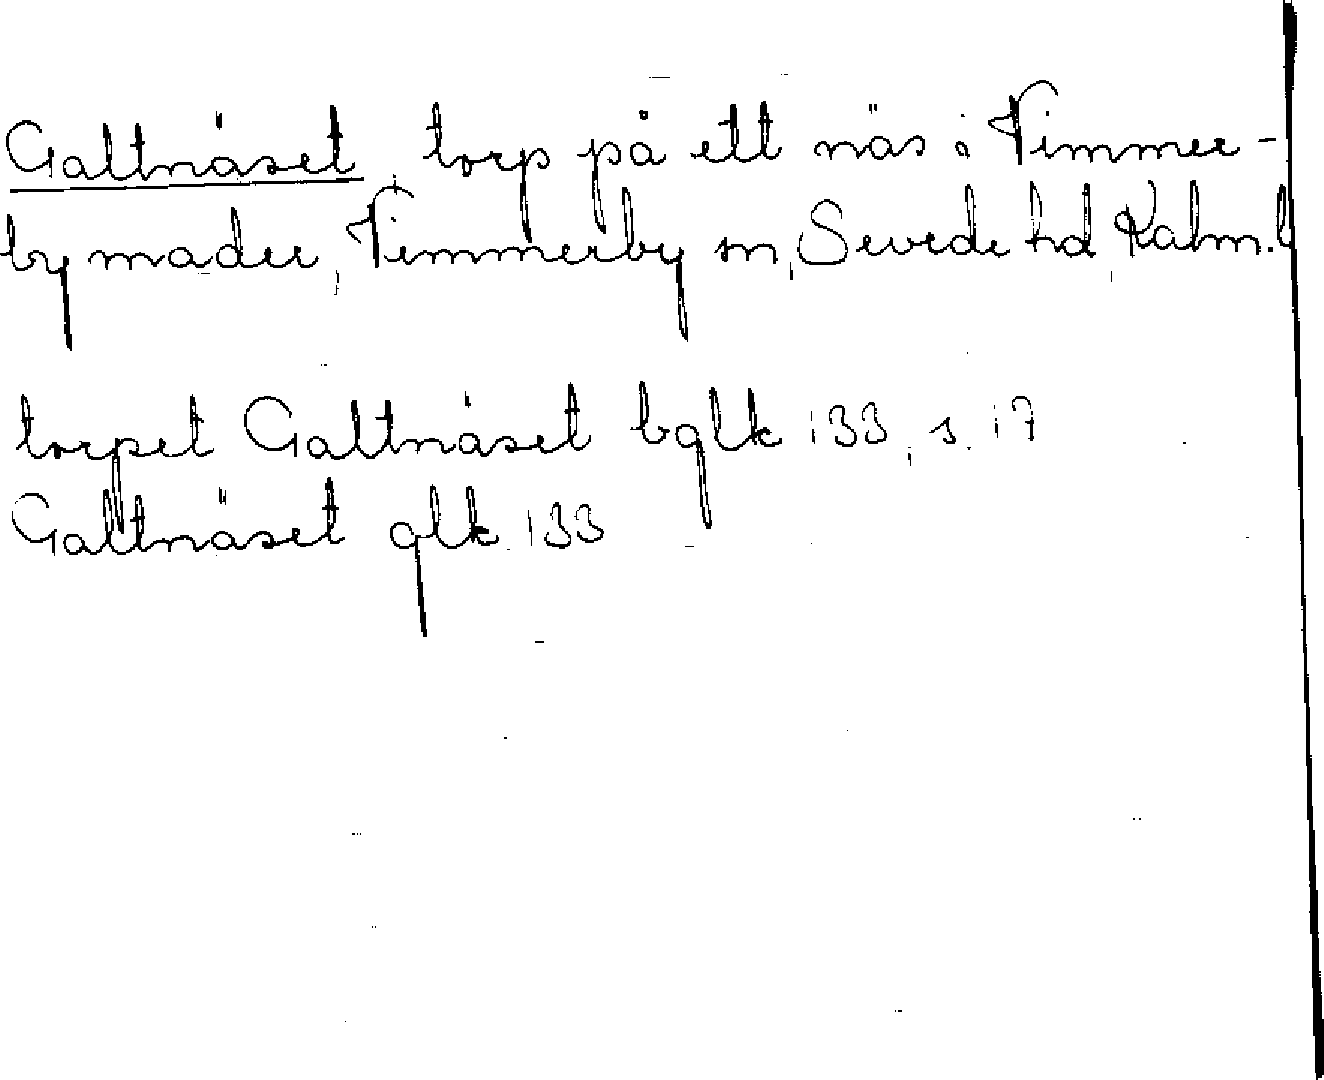 Galtnäset, torp på ett näs i Vimmer-
by mader, Vimmerby sn, Sevede hd, Kalm. l
torpet Galtnäset bglk 133, s. 17
Galtnäset glk 133